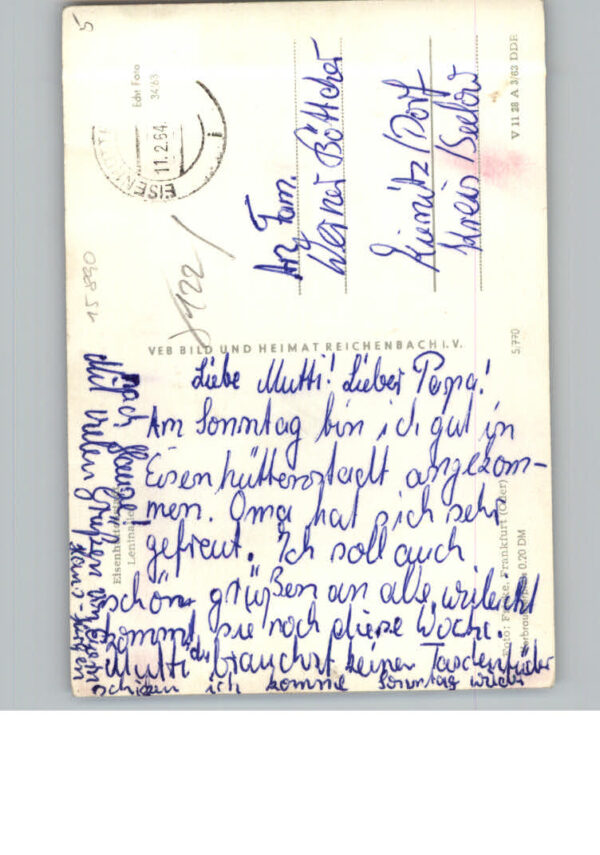 5
Echt Foto
34/63
EISENHÜTTEN
11.2.64.
An Fam.
Werner Böttcher
Kienitz/Dorf
Kreis Seelow
V 11 28 A 3/63 DDR
15890
VEB BILD UND HEIMAT REICHENBACH I. V.
5/770
Liebe Mutti! Lieber Papa!
Am Sonntag bin ich gut in
Eisenhüttenstadt angekom-
men. Oma hat sich sehr
gefreut. Ich soll auch
schön grüßen an alle, vileicht
kommt sie noch diese Woche.
Mutti du brauchst keinen Taschentücher
schicken ich komme Sonntag wieder
nach Hause!
Mit vielen Grüßen von eurem
Hans-Jürgen
Eisenhüttenstadt
Leninallee
Foto: Frankfurt (Oder)
0.20 DM